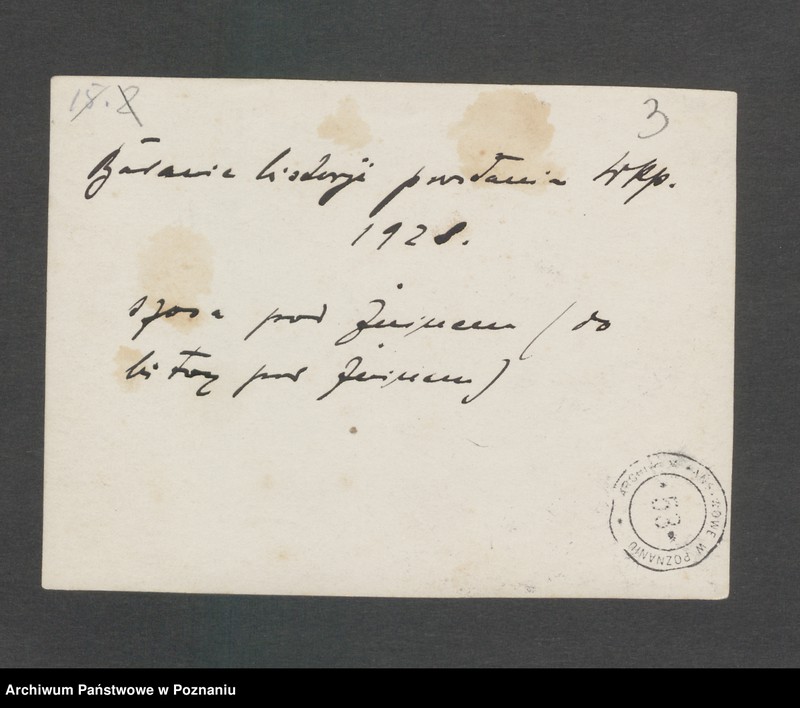 18. 2
3
Badania historji powstania Wlkp.
1928.
szosa pod Żninem (do
bitwy pod Żninem)
ARCHIWUM PAŃSTWOWE W POZNANIU
* 53 *
Archiwum Państwowe w Poznaniu